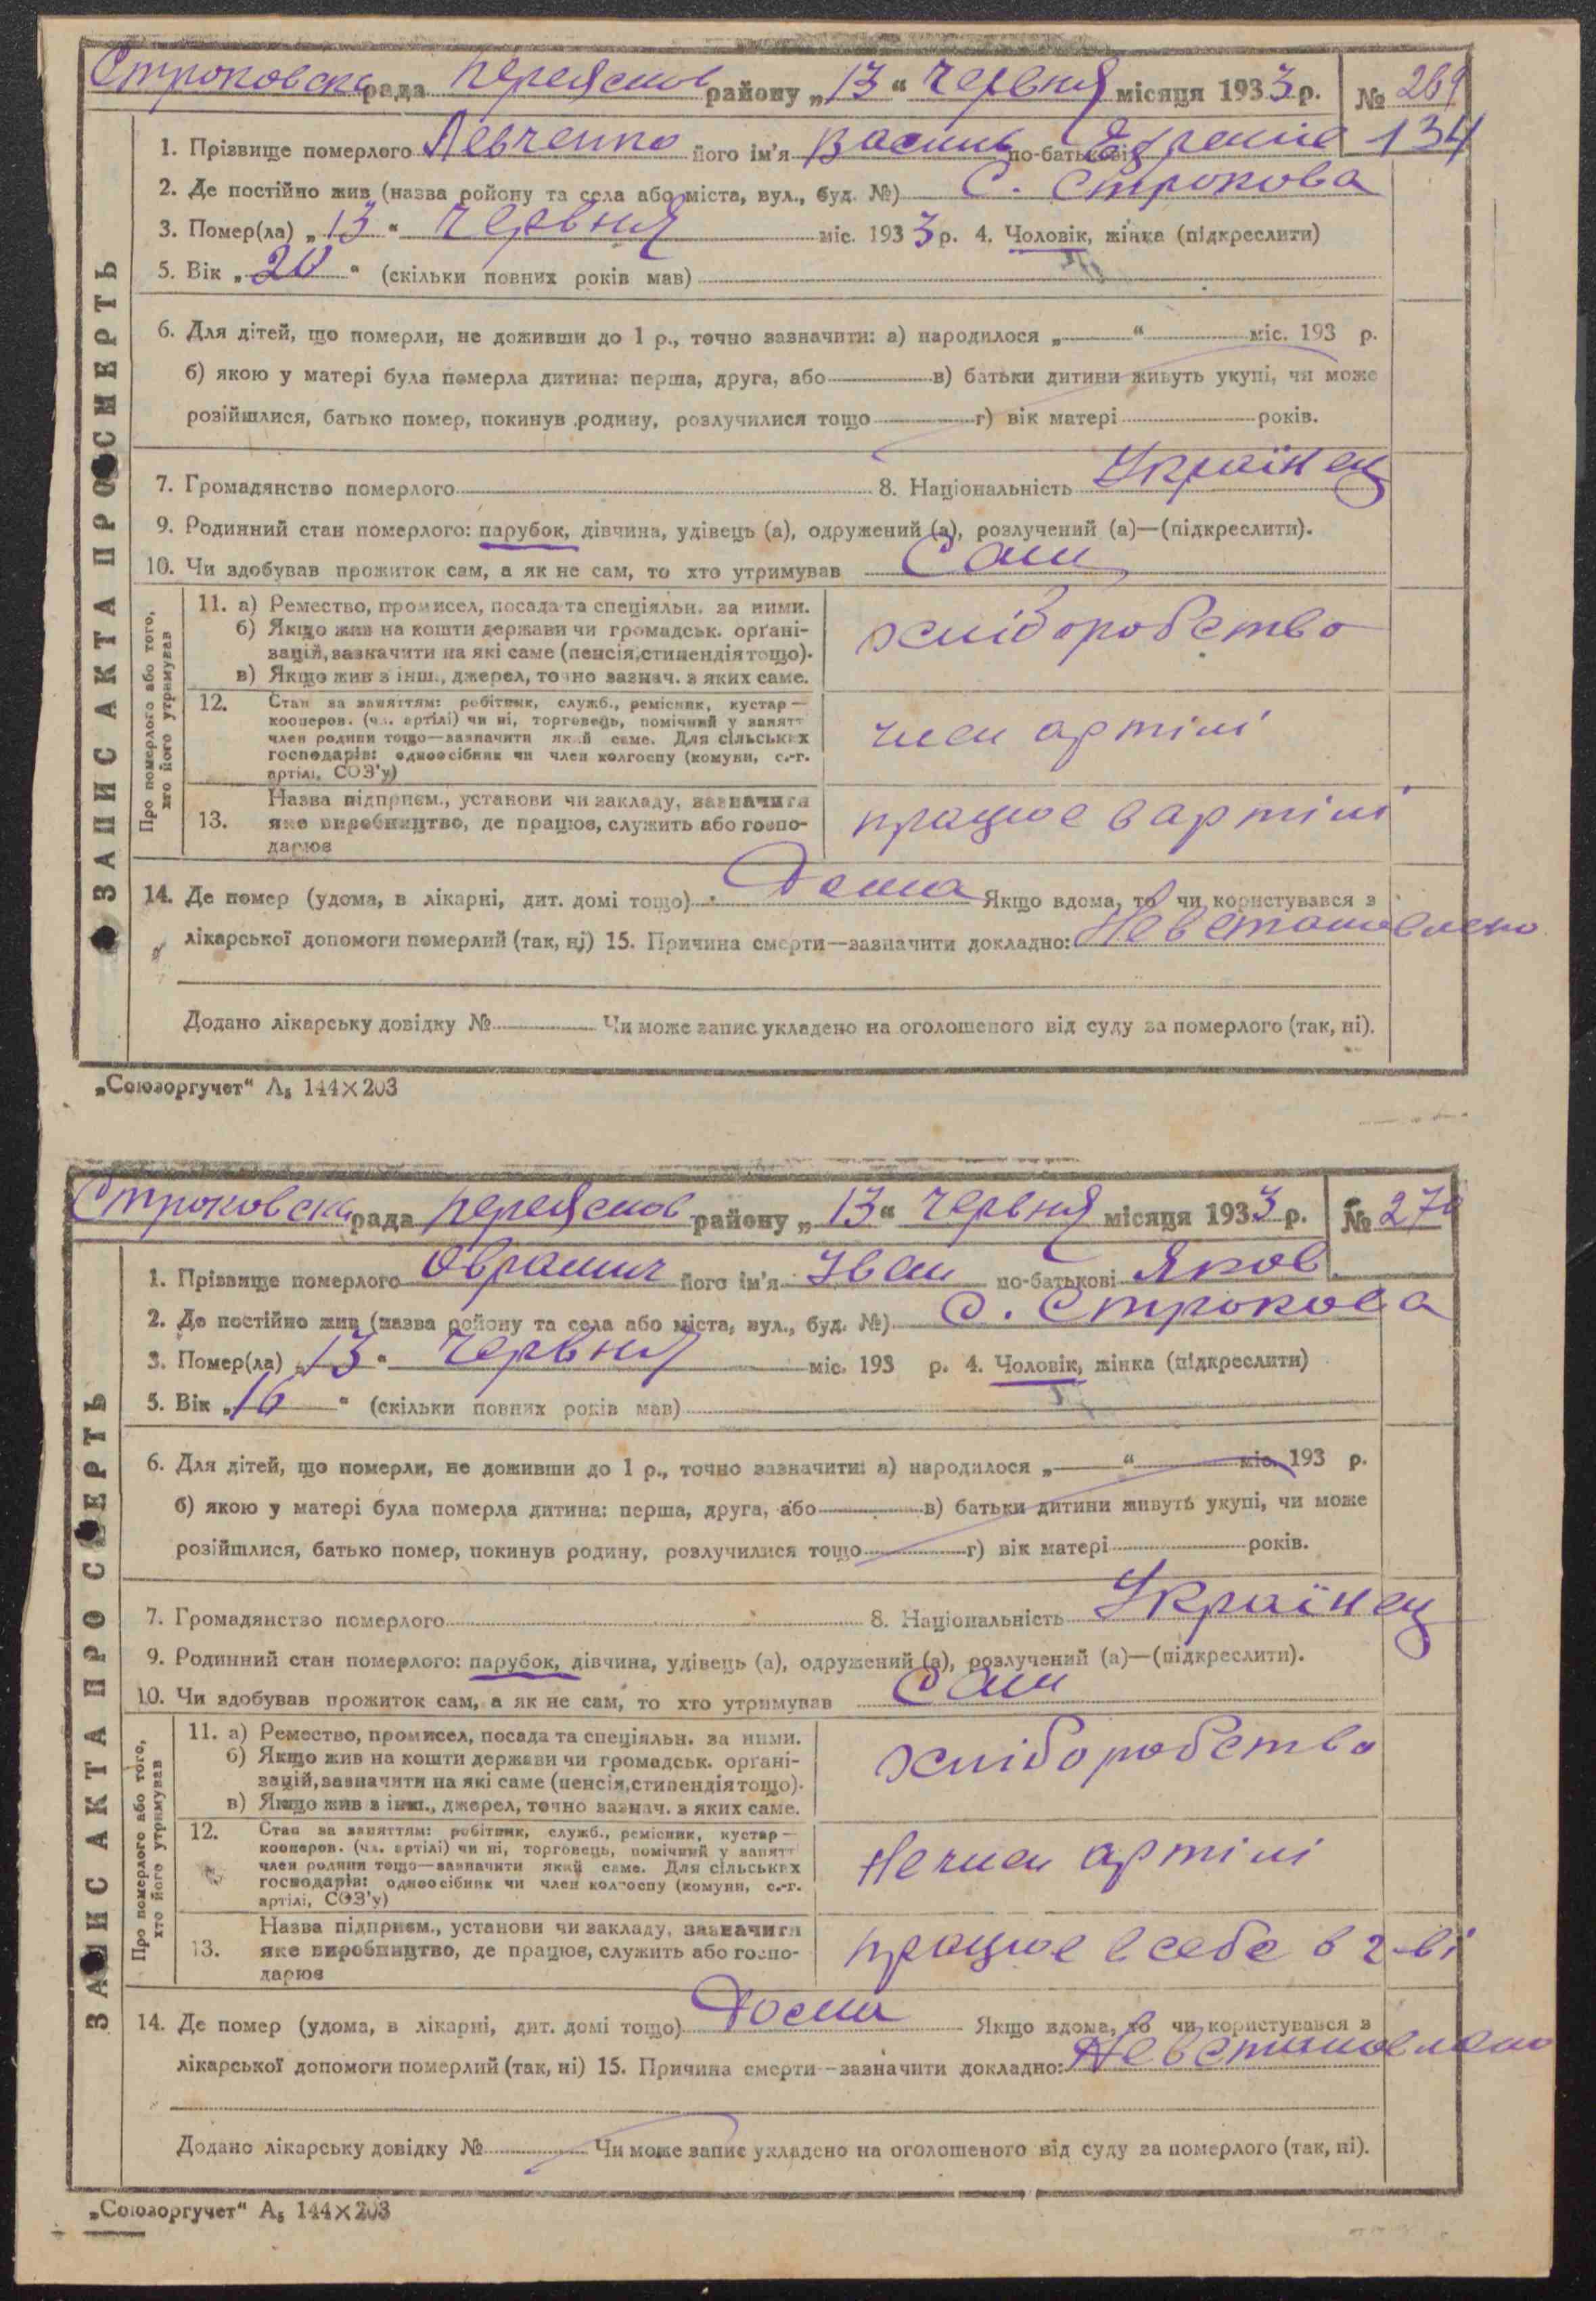 Строковска рада Переяслов району „13“ Червня місяця 1933 р. № 269
134
1. Прізвище померлого Левченко його ім'я Василь по-батькові
2. Де постійно жив (назва ройону та села або міста, вул., буд. №) С. Строкова
3. Помер(ла) „13“ Червня міс. 1933 р. 4. Чоловік, жінка (підкреслити)
5. Вік „20“ (скільки повних років мав)
6. Для дітей, що померли, не доживши до 1 р., точно зазначити: а) народилося „ “ міс. 193 р.
б) якою у матері була померла дитина: перша, друга, або в) батьки дитини живуть укупі, чи може
розійшлися, батько помер, покинув родину, розлучилися тощо г) вік матері років.
7. Громадянство померлого 8. Національність Українец
9. Родинний стан померлого: парубок, дівчина, удівець (а), одружений (а), розлучений (а)—(підкреслити).
10. Чи здобував прожиток сам, а як не сам, то хто утримував Сам
ЗАПИС АКТА ПРО СМЕРТЬ
Про померлого або того, хто його утримував
11. а) Ремество, промисел, посада та спеціяльн. за ними.
б) Якщо жив на кошти держави чи громадськ. орґані-
зацій, зазначити на які саме (пенсія, стипендія тощо).
в) Якщо жив з інш., джерел, точно зазнач. з яких саме.
хліборобство
12. Стан за заняттям: робітник, служб., ремісник, кустар—
кооперов. (чл. артілі) чи ні, торговець, помічний у занятт
член родини тощо—зазначити який саме. Для сільських
господарів: одноосібник чи член колгоспу (комуни, с.-г.
артілі, СОЗ'у)
член артілі
13. Назва підприєм., установи чи закладу, зазначити
яке виробництво, де працює, служить або госпо-
дарює
працює в артілі
14. Де помер (удома, в лікарні, дит. домі тощо) Дома Якщо вдома, то чи користувався з
лікарської допомоги померлий (так, ні) 15. Причина смерти—зазначити докладно: Невстановлено
Додано лікарську довідку № Чи може запис укладено на оголошеного від суду за померлого (так, ні).
„Союзоргучет“ А₅ 144×203
Строковска рада Переяслов району „13“ Червня місяця 1933 р. № 270
1. Прізвище померлого Аврамич його ім'я Іван по-батькові Яков
2. Де постійно жив (назва ройону та села або міста, вул., буд. №) С. Строкова
3. Помер(ла) „13“ Червня міс. 193 р. 4. Чоловік, жінка (підкреслити)
5. Вік „16“ (скільки повних років мав)
6. Для дітей, що померли, не доживши до 1 р., точно зазначити: а) народилося „ “ міс. 193 р.
б) якою у матері була померла дитина: перша, друга, або в) батьки дитини живуть укупі, чи може
розійшлися, батько помер, покинув родину, розлучилися тощо г) вік матері років.
7. Громадянство померлого 8. Національність Українец
9. Родинний стан померлого: парубок, дівчина, удівець (а), одружений (а), розлучений (а)—(підкреслити).
10. Чи здобував прожиток сам, а як не сам, то хто утримував Сам
ЗАПИС АКТА ПРО СМЕРТЬ
Про померлого або того, хто його утримував
11. а) Ремество, промисел, посада та спеціяльн. за ними.
б) Якщо жив на кошти держави чи громадськ. орґані-
зацій, зазначити на які саме (пенсія, стипендія тощо).
в) Якщо жив з інш., джерел, точно зазнач. з яких саме.
хліборобство
12. Стан за заняттям: робітник, служб., ремісник, кустар—
кооперов. (чл. артілі) чи ні, торговець, помічний у занятт
член родини тощо—зазначити який саме. Для сільських
господарів: одноосібник чи член колгоспу (комуни, с.-г.
артілі, СОЗ'у)
Нечлен артілі
13. Назва підприєм., установи чи закладу, зазначити
яке виробництво, де працює, служить або госпо-
дарює
працює в себе в г-ві
14. Де помер (удома, в лікарні, дит. домі тощо) Дома Якщо вдома, то чи користувався з
лікарської допомоги померлий (так, ні) 15. Причина смерти—зазначити докладно: Невстановлено
Додано лікарську довідку № Чи може запис укладено на оголошеного від суду за померлого (так, ні).
„Союзоргучет“ А₅ 144×203